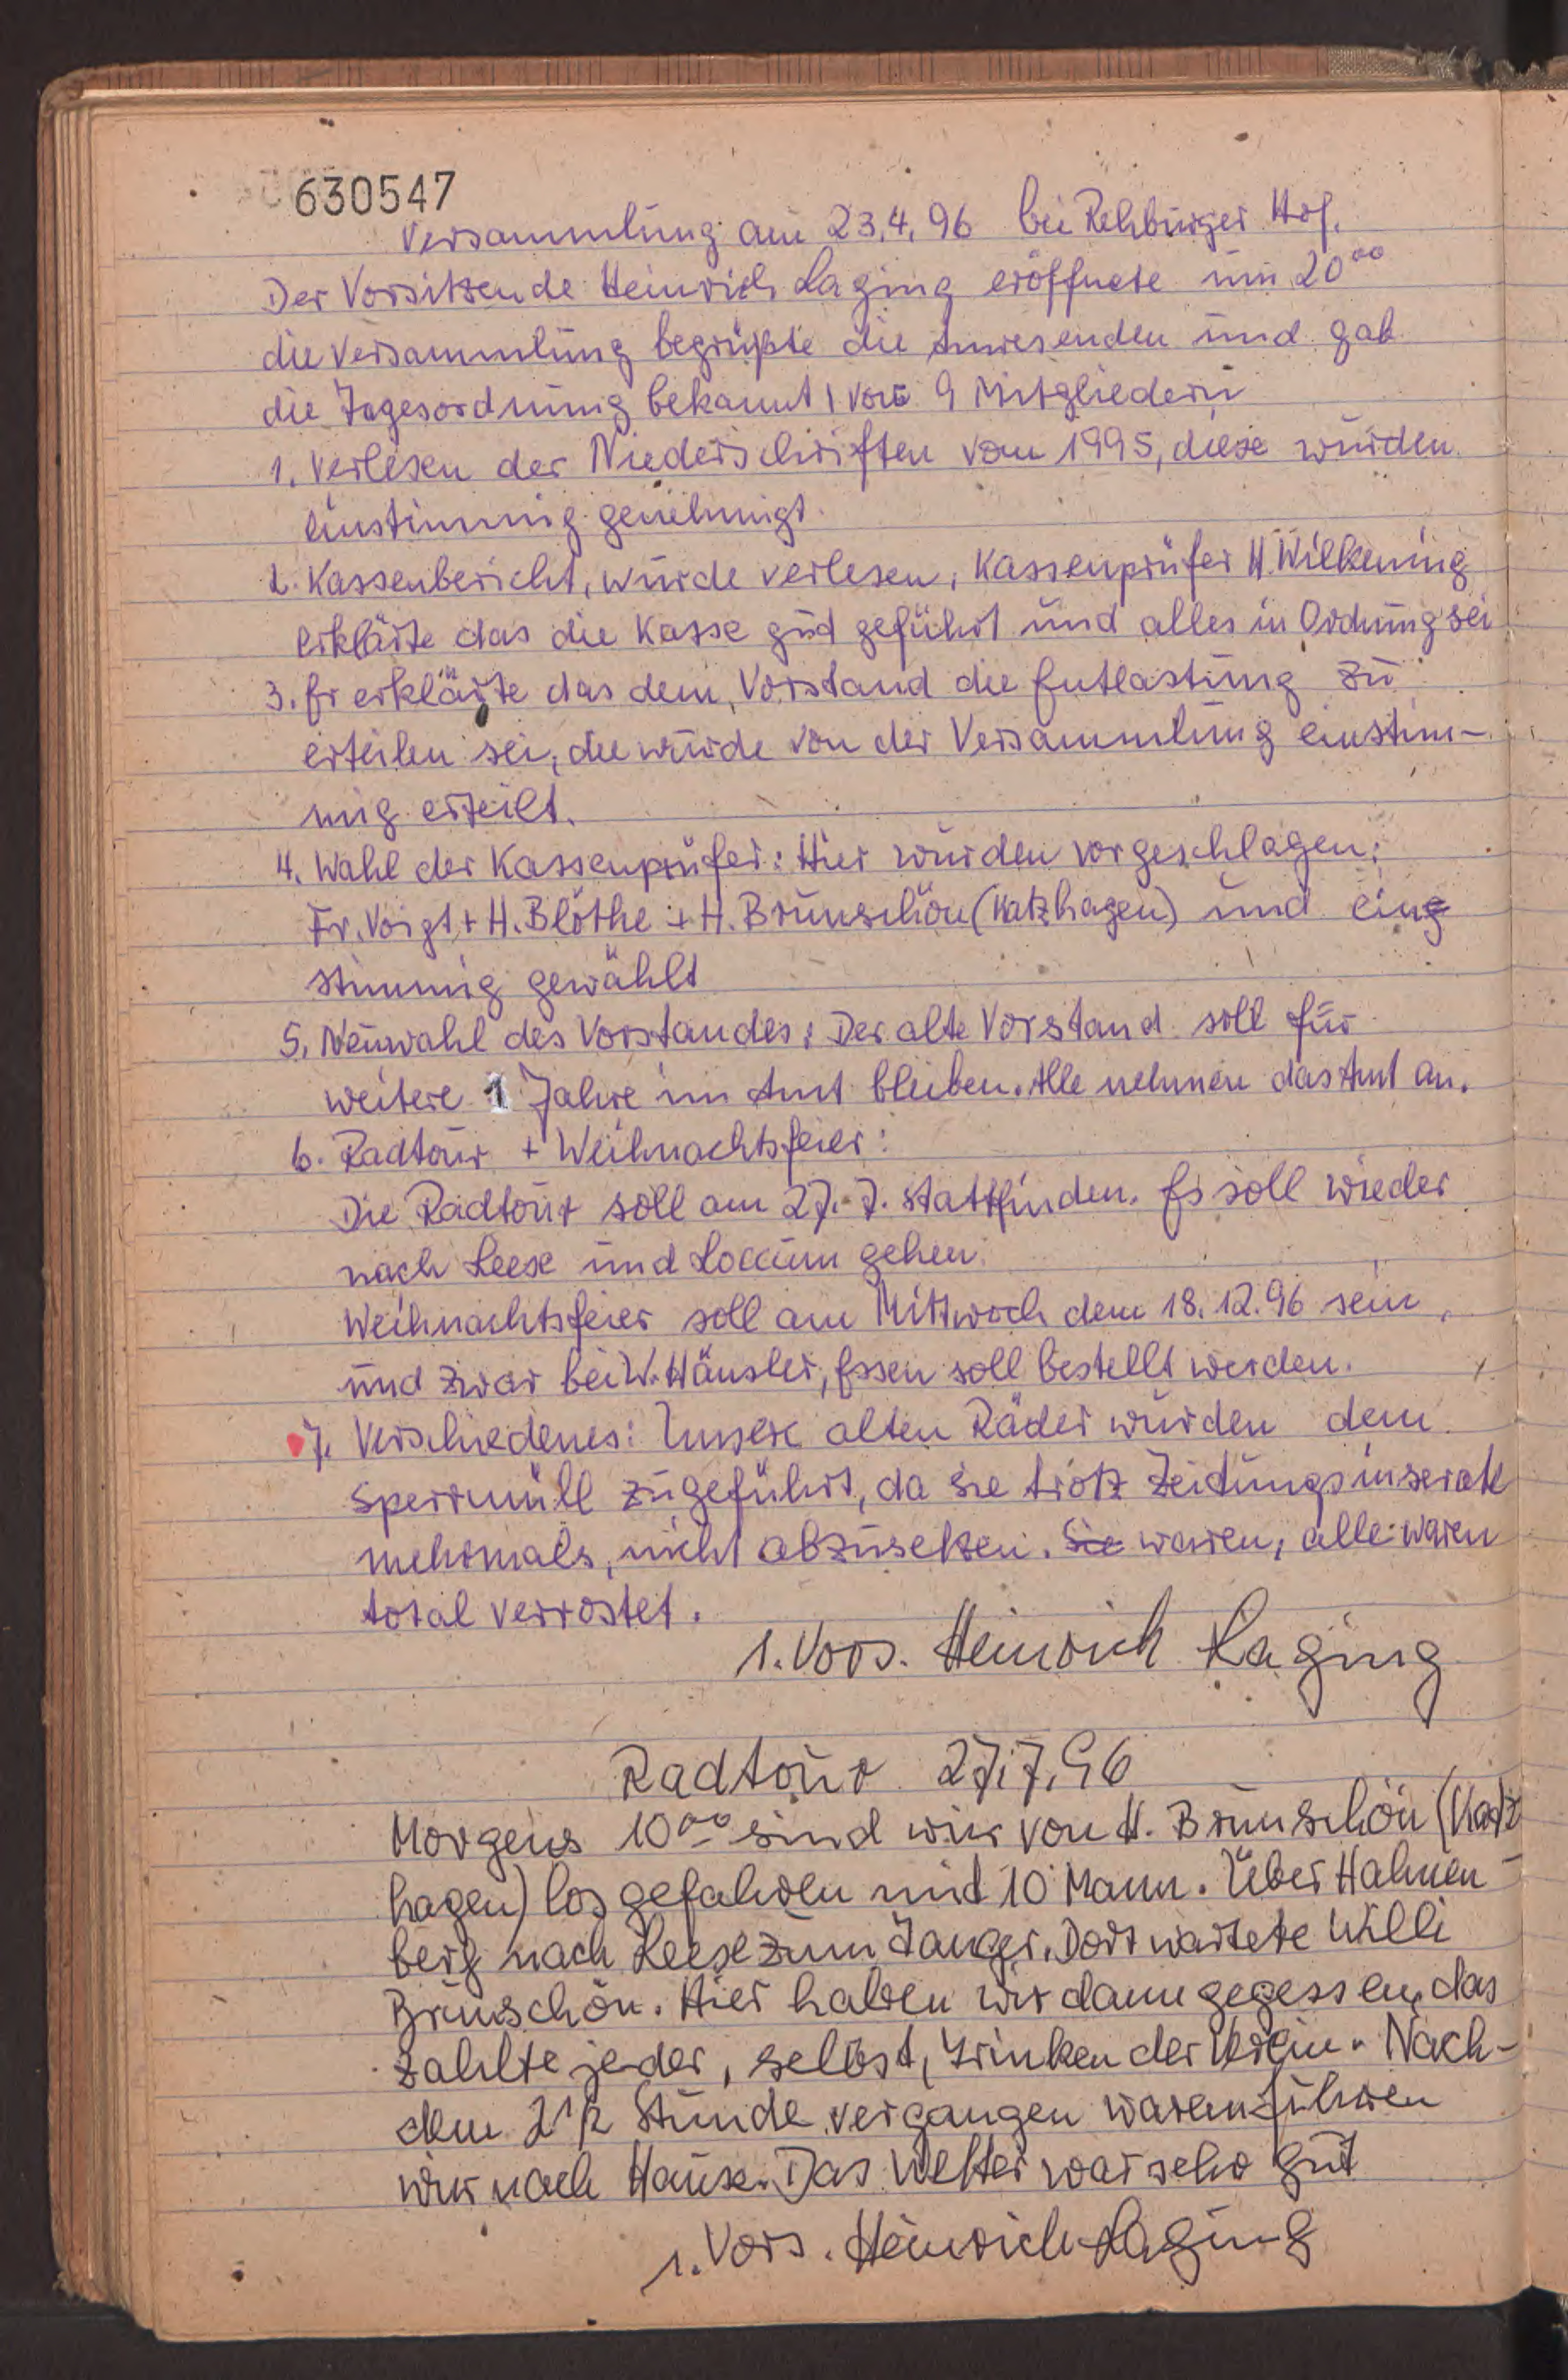 630547
Versammlung am 23.4.96 bei Rehburger Hof.
Der Vorsitzende Heinrich Laging eröffnete um 20⁰⁰
die Versammlung begrüßte die Anwesenden und gab
die Tagesordnung bekannt, von 9 Mitgliedern
1. Verlesen der Niederschriften vom 1995, diese wurden
einstimmig genehmigt.
2. Kassenbericht, wurde verlesen, Kassenprüfer H. Wilkening
erklärte das die Kasse gut geführt und alles in Ordnung sei
3. Er erklärte das dem Vorstand die Entlastung zu
erteilen sei, die wurde von der Versammlung einstim-
mig erteilt.
4. Wahl der Kassenprüfer: Hier wurden vorgeschlagen:
Fr. Voigt + H. Blöthe + H. Brunschön (Katzhagen) und ein
stimmig gewählt
5. Neuwahl des Vorstandes: Der alte Vorstand soll für
weitere 1 Jahre im Amt bleiben. Alle nehmen das Amt an.
6. Radtour + Weihnachtsfeier:
Die Radtour soll am 27.7. stattfinden. Es soll wieder
nach Leese und Loccum gehen.
Weihnachtsfeier soll am Mittwoch dem 18.12.96 sein,
und zwar bei W. Häusler, Essen soll bestellt werden.
7. Verschiedenes: Unsere alten Räder wurden dem
Sperrmüll zugeführt, da sie trotz Zeitungsinserate
mehrmals, nicht abzusetzen. Sie waren, alle waren
total verrostet.
1. Vors. Heinrich Laging
Radtour 27.7.96
Morgens 10⁰⁰ sind wir von H. Brunschön (Katz
hagen) losgefahren mit 10 Mann. Über Hahnen-
berg nach Leese zum Janger. Dort wartete Willi
Brunschön. Hier haben wir dann gegessen, das
zahlte jeder, selbst, trinken der Verein. Nach-
dem 2 1/2 Stunde vergangen waren fuhren
wir nach Hause. Das Wetter war sehr gut
1. Vors. Heinrich Laging